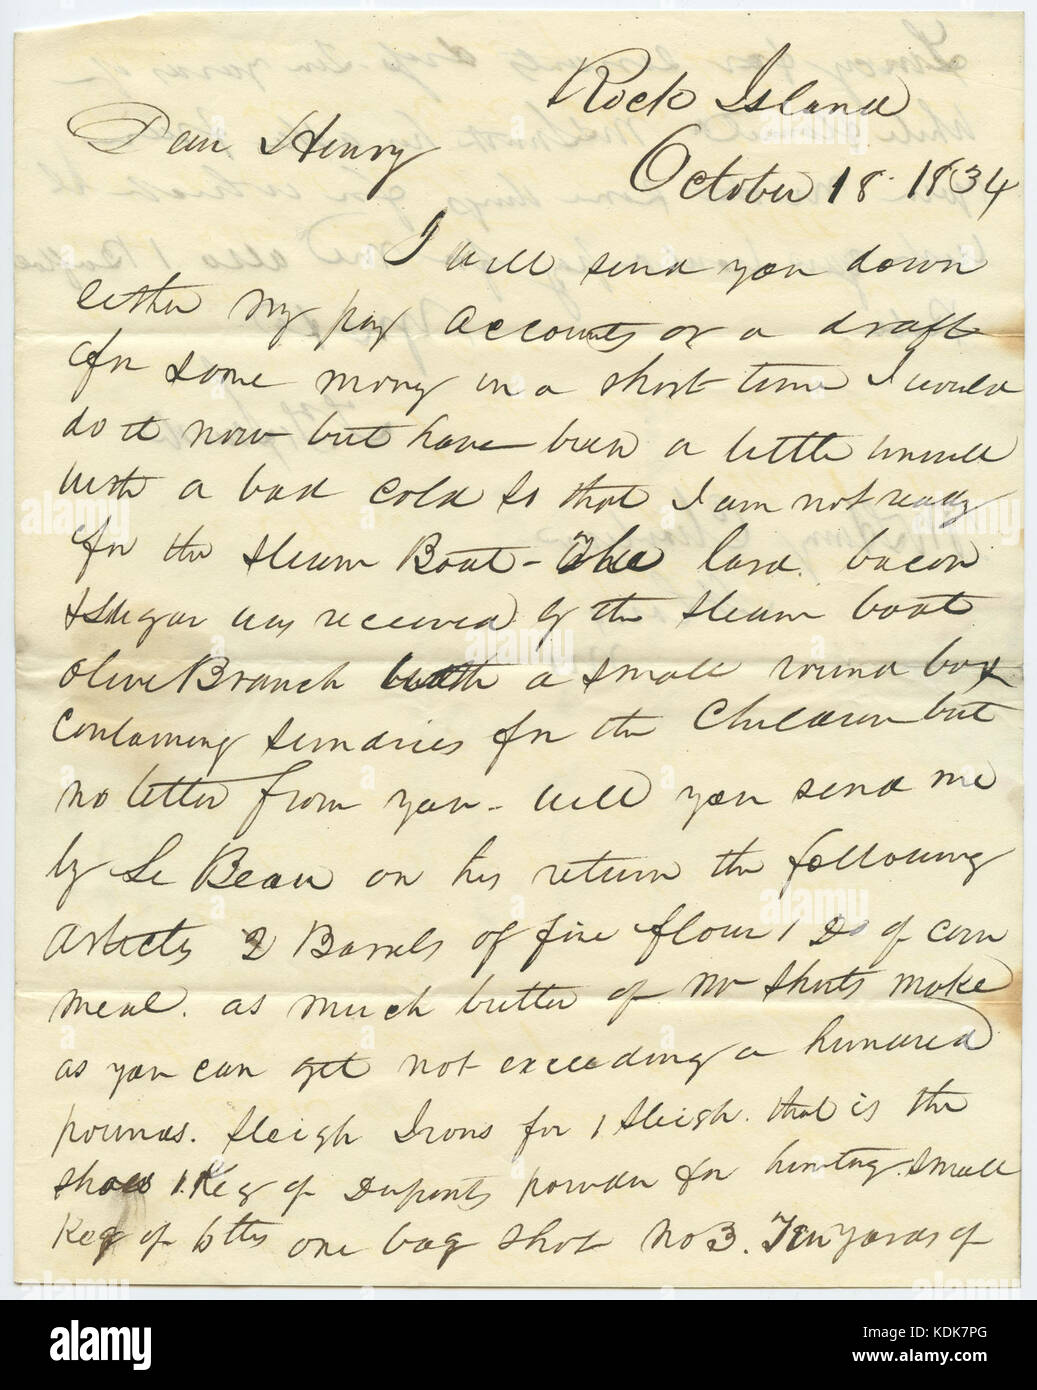 Rock Island
Dear Henry
October 18 1834
I will send you down
either my pay accounts or a draft
for some money in a short time I would
do it now but have been a little unwell
with a bad cold so that I am not ready
for the Steam Boat - The lard bacon
& sugar was received by the steam boat
Olive Branch with a small round box
containing sundries for the Children but
no letter from you - will you send me
by Le Beau on his return the following
articles 2 Barrels of fine flour 1 Do of corn
meal. as much butter of No Shorts make
as you can get not exceeding a hundred
pounds. Sleigh Irons for 1 Sleigh. that is the
shoes 1 Keg of Duponts powder for hunting. small
Keg of 6 lbs one bag shot No 3. Ten yards of
alamy
alamy stock photo
KDK7PG
www.alamy.com